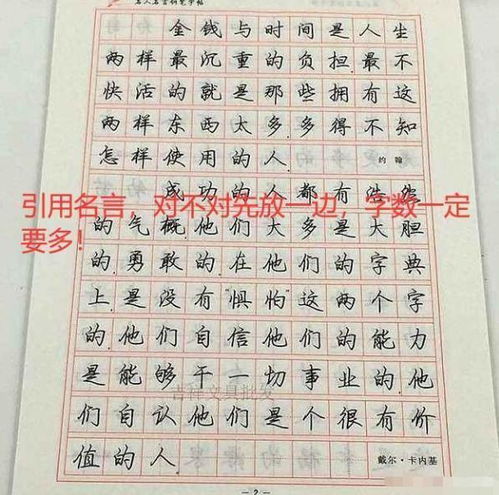 名人名言钢笔字帖
金钱与时间是人生
两样最沉重的负担.最不
快活的就是那些拥有这
两样东西太多多得不知
怎样使用的人. 约翰
成功的人都有浩然
引用名言，对不对先放一边，字数一定
要多！
的气概.他们大多是大胆
的.勇敢的.在他们的字典
上是没有"惧怕"这两个字
的.他们自信他们的能力
是能够干一切事业的.他
们自认他们是个很有价
值的人. 戴尔·卡内基
-2-